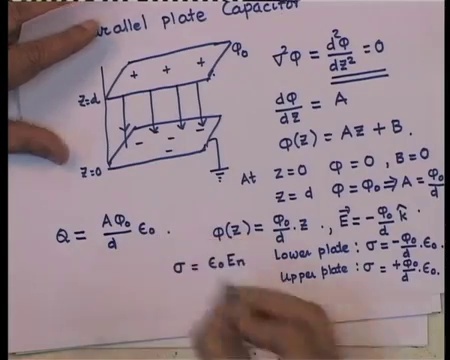 Parallel plate Capacitor
φ₀
+ + +
z=d
- - -
- -
z=0
∇²φ = d²φ/dz² = 0
dφ/dz = A
φ(z) = Az + B.
At z=0 φ=0, B=0
z=d φ=φ₀ ⇒ A = φ₀/d
φ(z) = φ₀/d . z , E⃗ = -φ₀/d k̂
Q = Aφ₀/d ε₀.
σ = ε₀En
Lower plate : σ = -φ₀/d . ε₀.
Upper plate : σ = +φ₀/d . ε₀.